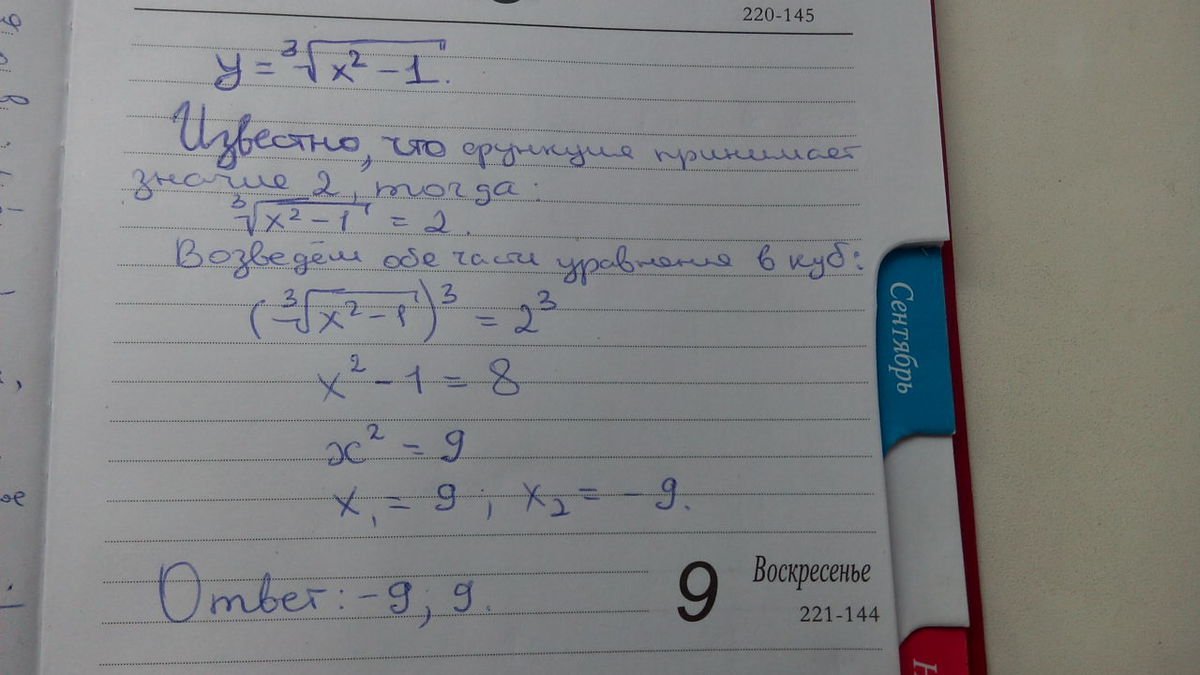 220-145
y = ∛(x² - 1).
Известно, что функция принимает
значие 2, тогда:
∛(x² - 1) = 2.
Возведём обе части уравнения в куб:
(∛(x² - 1))³ = 2³
x² - 1 = 8
x² = 9
x₁ = 9 ; x₂ = - 9.
Ответ: -9; 9.
9 Воскресенье
221-144
Сентябрь